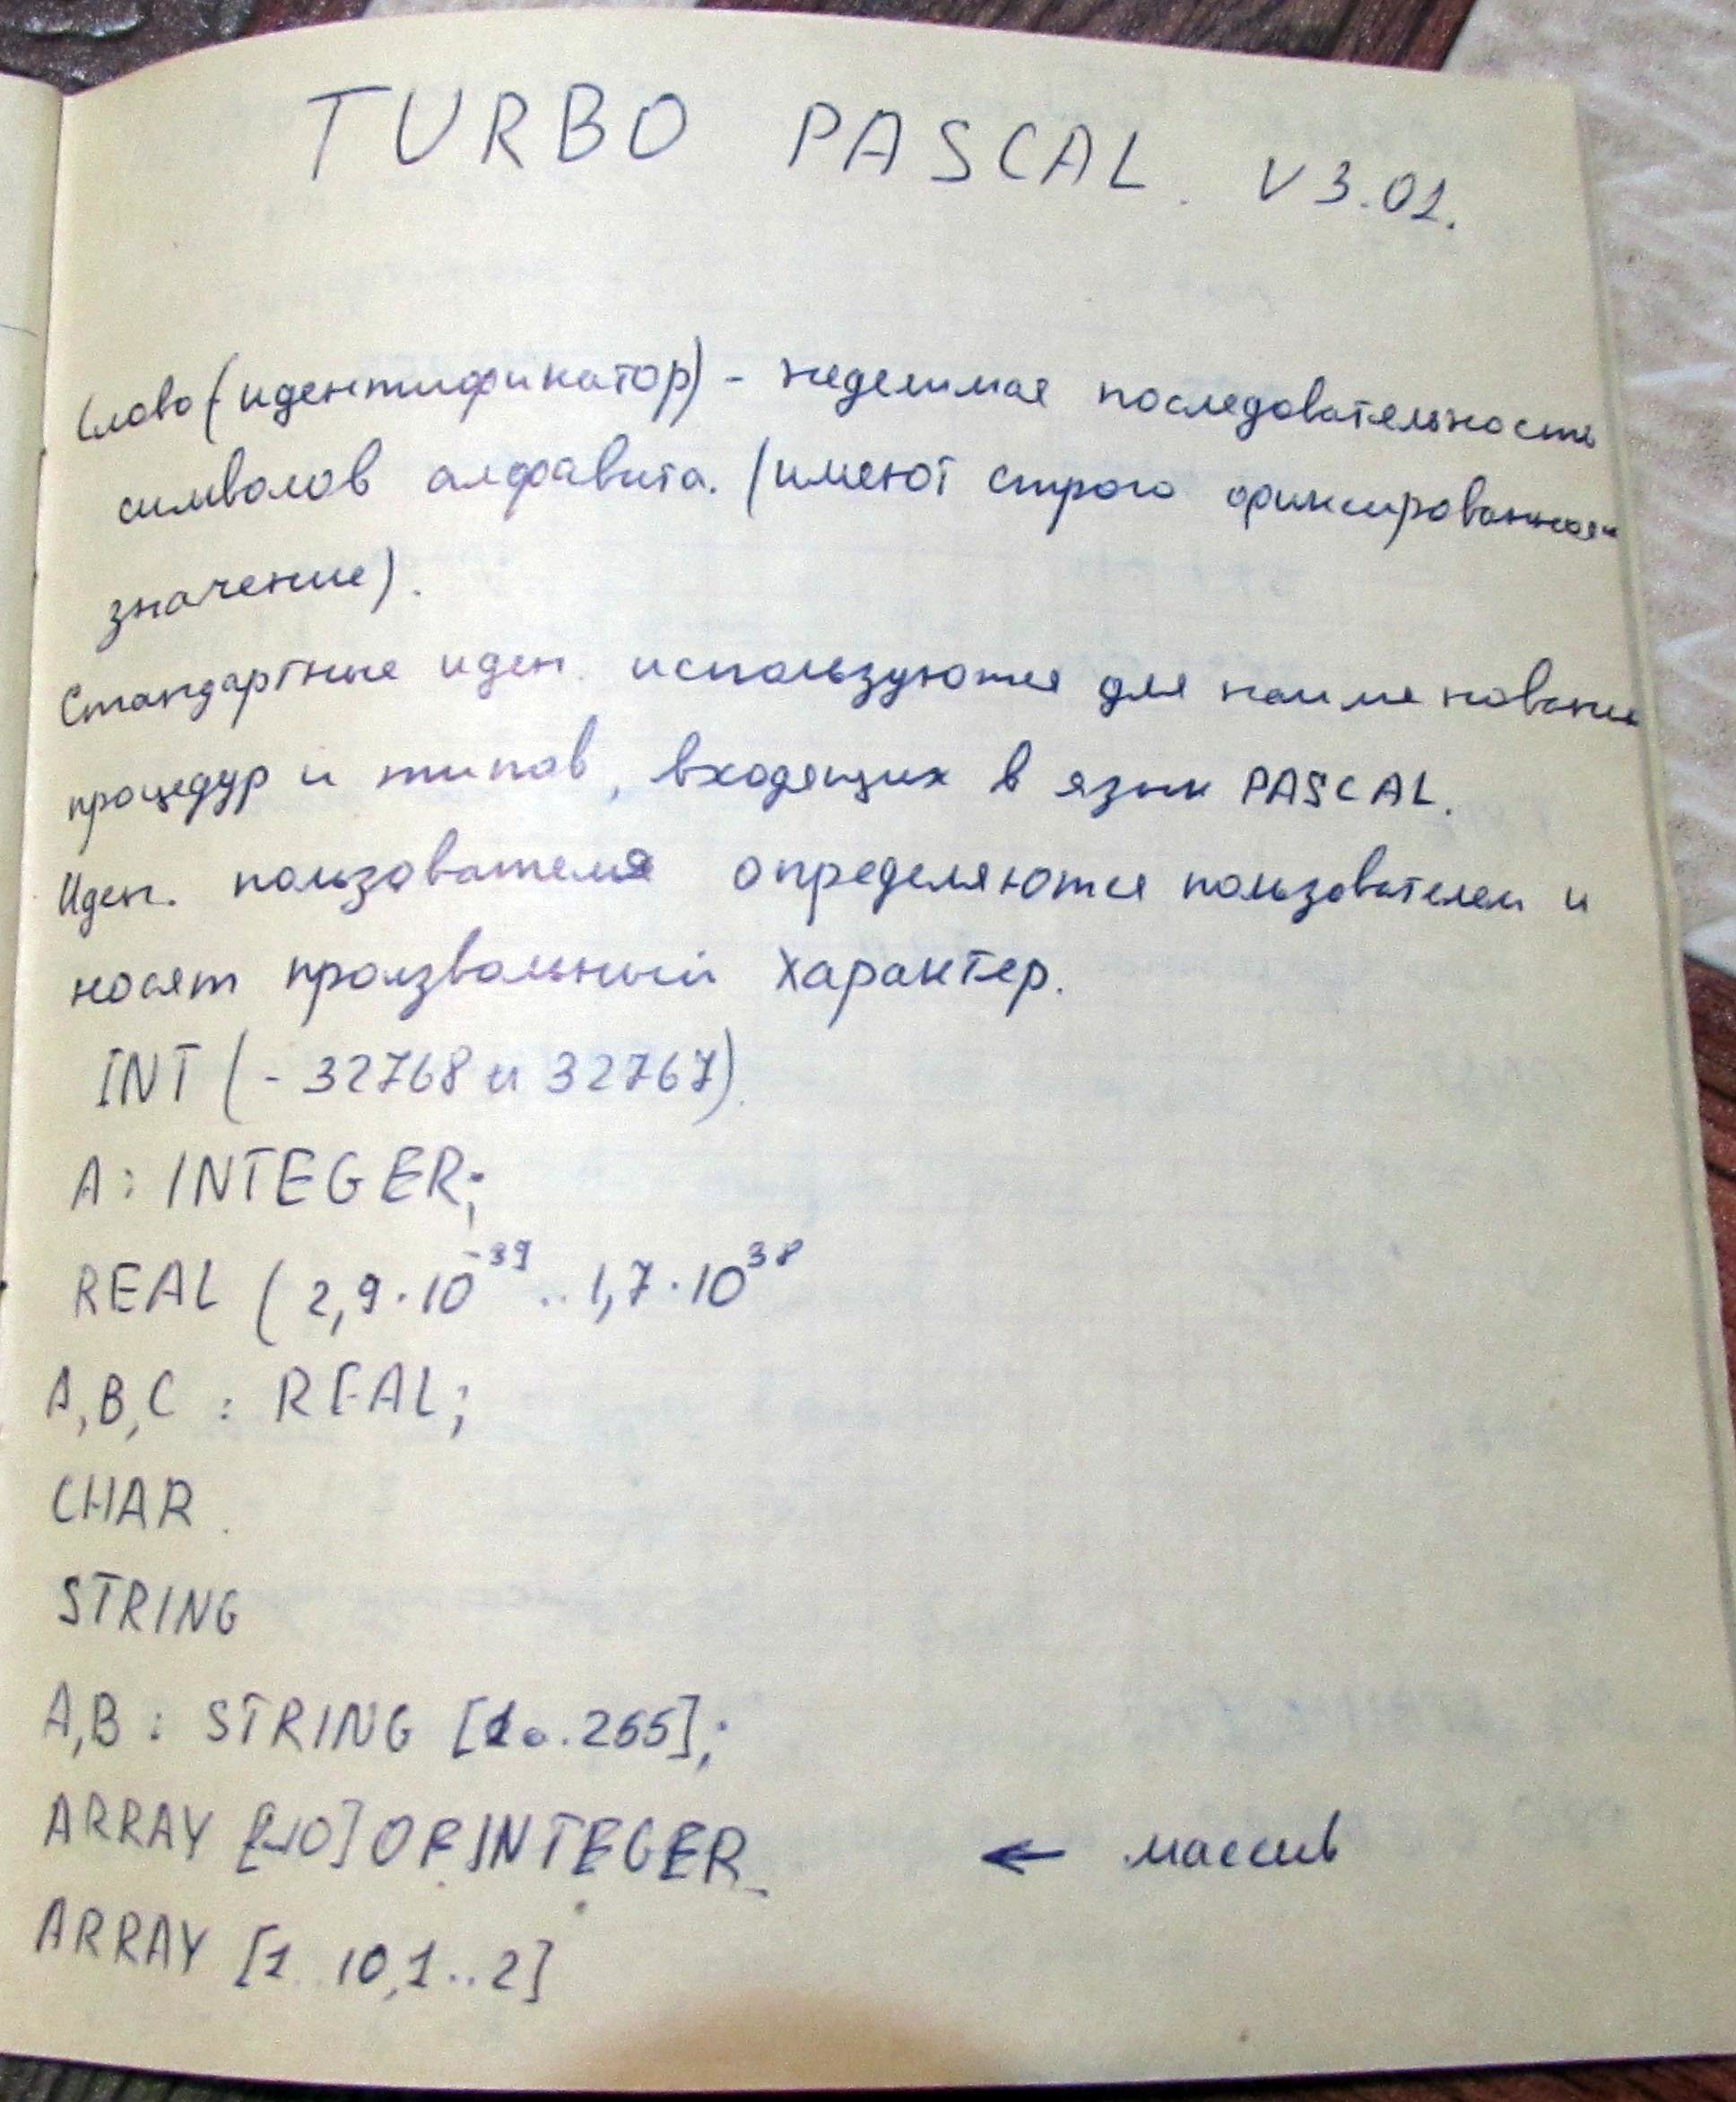 TURBO PASCAL. V 3.01.
Слово (идентификатор) - неделимая последовательность
символов алфавита. (имеют строго фиксированное
значение).
Стандартные иден. используются для наименования
процедур и типов, входящих в язык PASCAL.
Иден. пользователя определяются пользователем и
носят произвольный характер.
INT (- 32768 и 32767).
A: INTEGER;
REAL ( 2,9·10⁻³⁹ .. 1,7·10³⁸
A,B,C : REAL;
CHAR.
STRING
A,B : STRING [1..255];
ARRAY OF INTEGER ← массив
ARRAY [1..10,1..2]